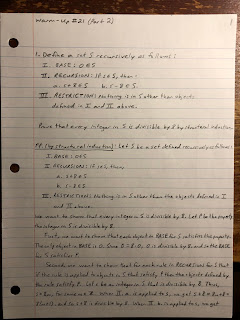 Warm-Up #21 (Part 2)
1. Define a set S recursively as follows:
I. BASE: 0∈S
II. RECURSION: If s∈S, then
a. s+8∈S b. s-8∈S
III. RESTRICTION: Nothing is in S other than objects
defined in I and II above.
Prove that every integer in S is divisible by 8 by structural induction.
PF (by structural induction): Let S be a set defined recursively as follows:
I. BASE: 0∈S
II. RECURSION: If s∈S, then
a. s+8∈S
b. s-8∈S
III. RESTRICTION: Nothing is in S other than the objects defined in I
and II above.
We want to show that every integer in S is divisible by 8. Let P be the property
the integer in S is divisible by 8.
First, we want to show that each object to BASE for S satisfies the property.
The only object in BASE is 0. Since 0=8·0, 0 is divisible by 8, and so the BASE
for S satisfies P.
Second, we want to show that for each rule in RECURSION for S that
if the rule is applied to objects in S that satisfy P then the objects defined by
the rule satisfy P. Let s be an integer in S that is divisible by 8. Thus,
s=8m, for some m∈Z. When II a. is applied to s, we get s+8=8m+8=
8(m+1), and so s+8 is divisible by 8. When II b. is applied to s, we get